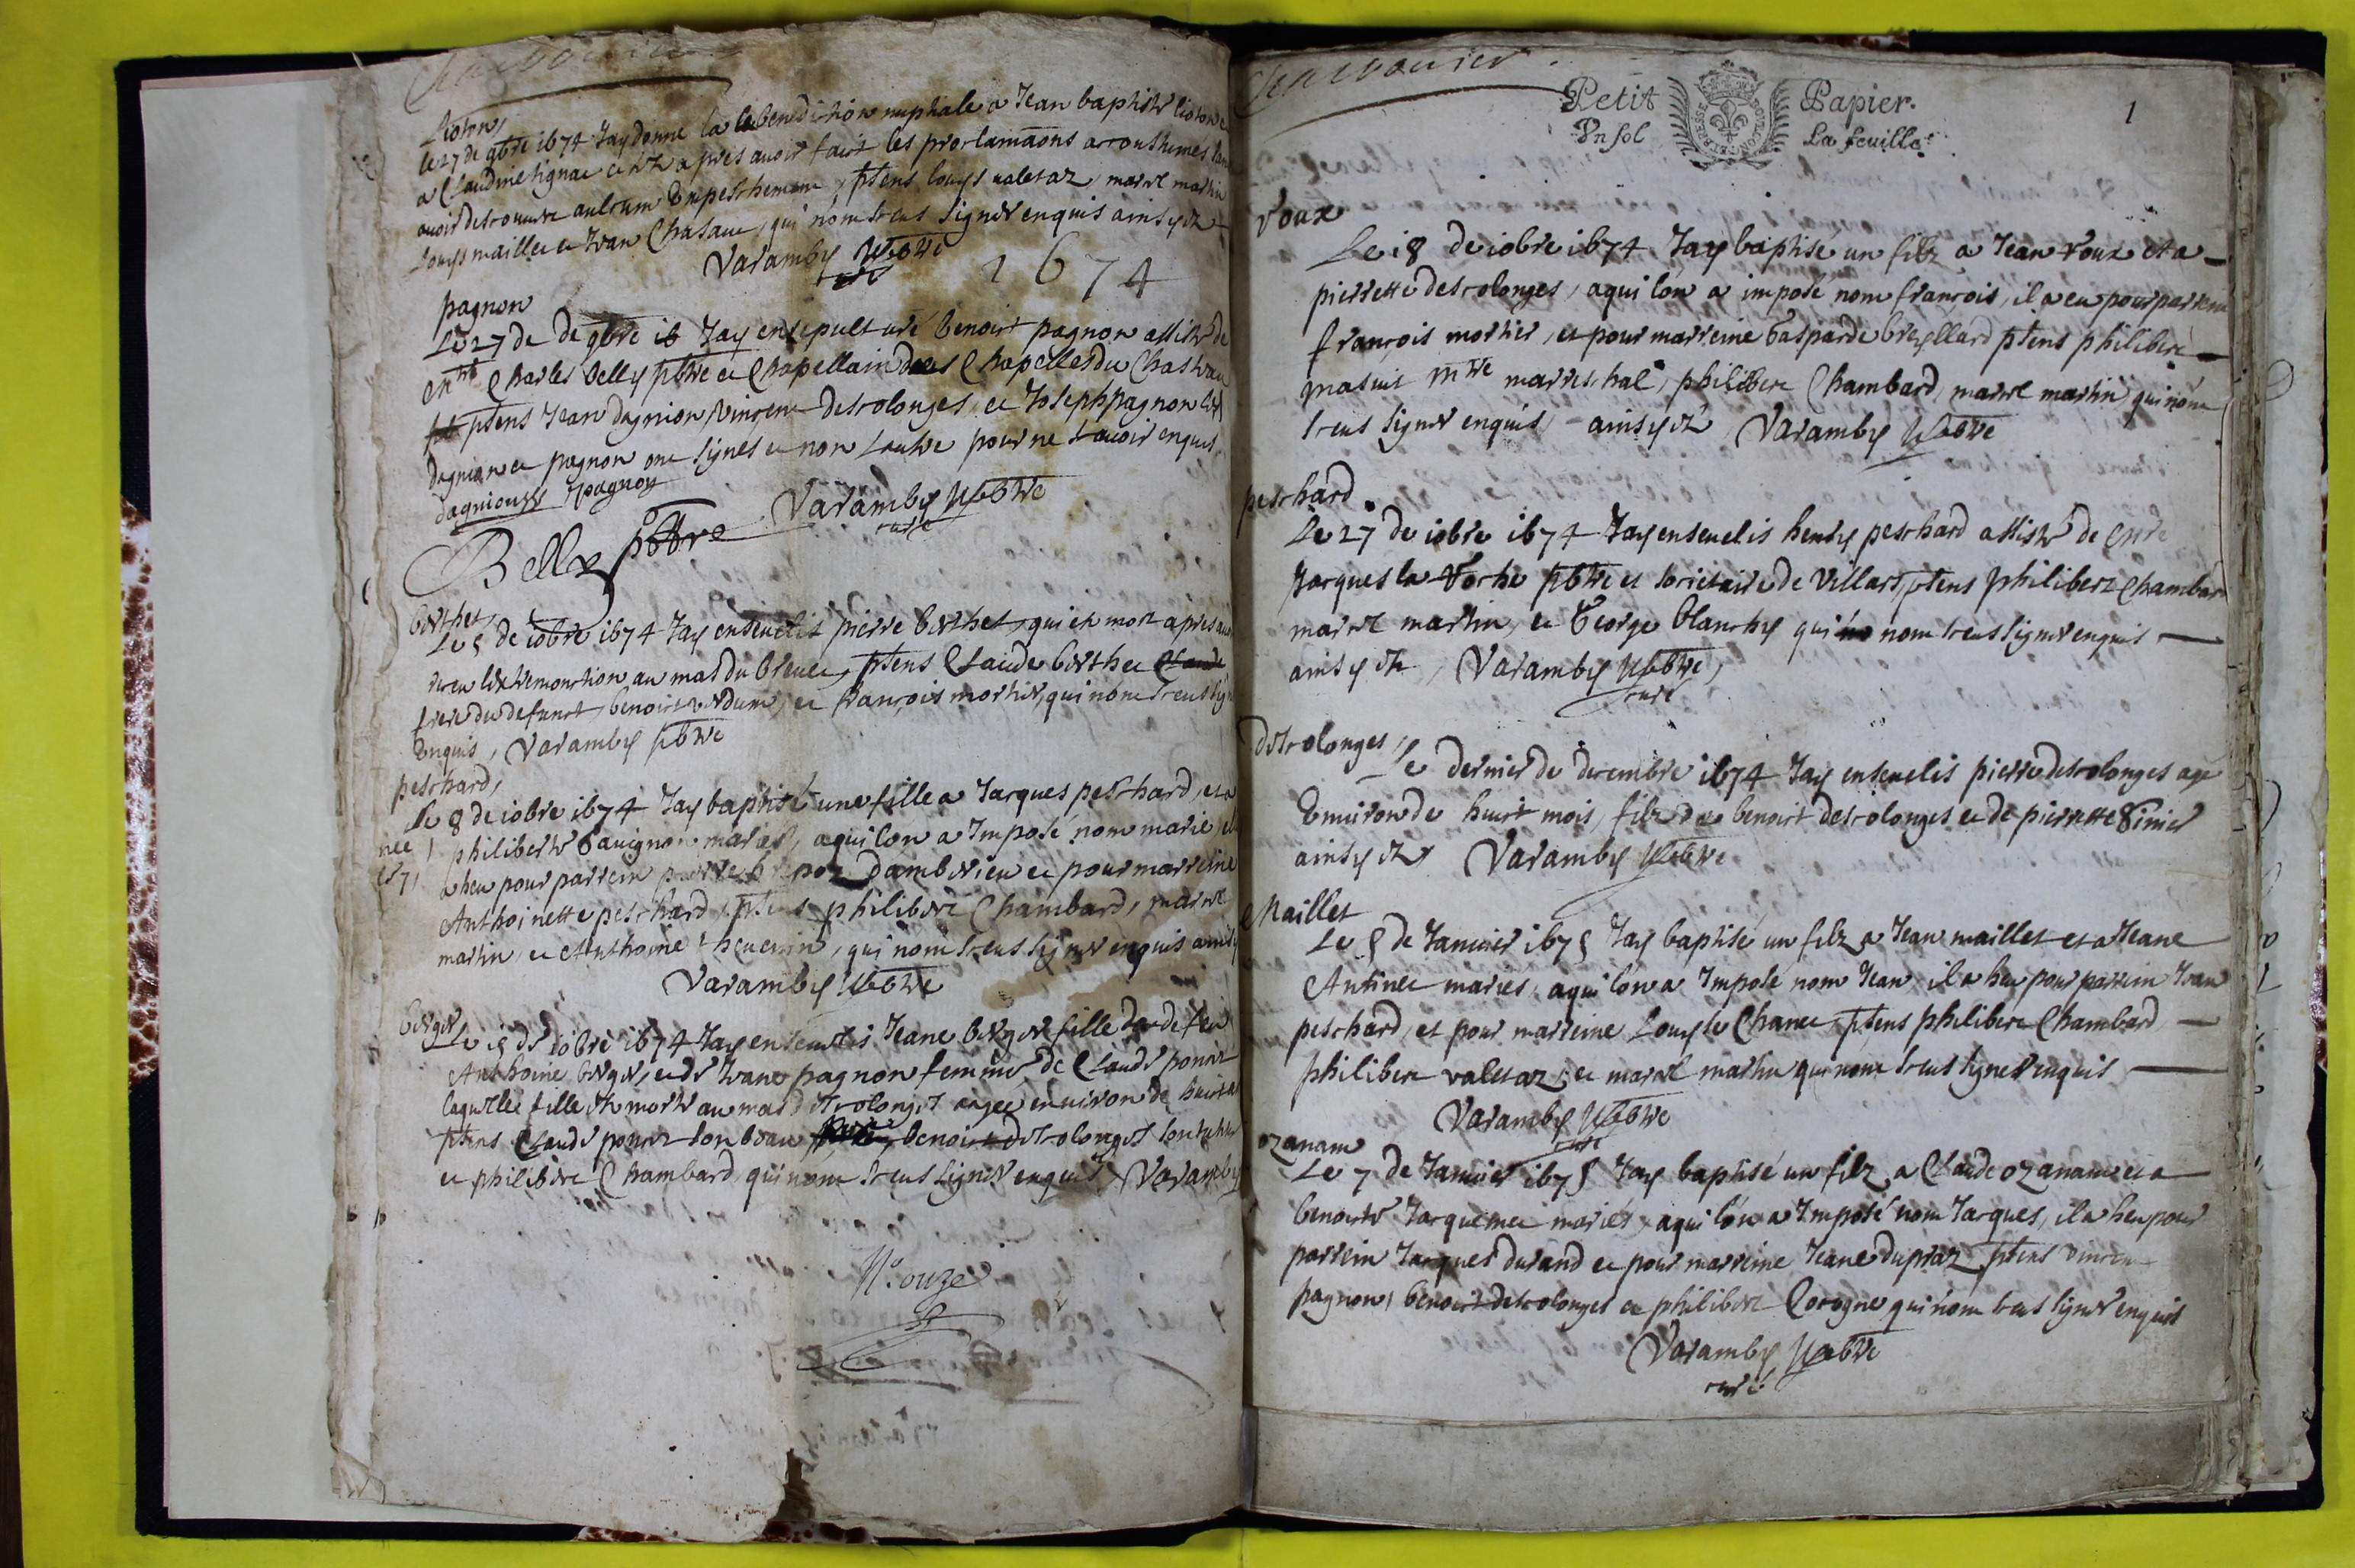 Lioton,
le 27 de 9bre 1674 Jay donne la benediction nuptiale a Jean baptiste lioton
a Claudine tignac apres avoir faict les proclamaons accoustumes
avoir descouvert aulcum Empeschement, ptens louys valetaz, martin
Louys maillet et Jean Chasaut, qui nont sceus signer enquis ainsy est
Varamby pbtre
1674
pagnon
Le 27 de de 9bre 16 Jay ensepulturé benoist pagnon assiste de
Charles Belly pbtre et Chapellain des Chapelles du Chasteau
ptens Jean dagnion, vincent descolonges, et Joseph pagnon
dagnion et pagnon ont signes et non l'autre pour ne scavoir enquis
dagnion pagnon
Varamby pbtre
curé
Belly pbtre
berthet,
Le 5 de 10bre 1674 Jay ensevelis pierre berthet, qui est mort apres
receu l'extremonction au mas du breuet, ptens Claude berthet
frere du defunct, benoist verdum, et francois mortier, qui nont sceus
Enquis, Varamby pbtre
peschard,
Le 8 de 10bre 1674 Jay baptisé une fille a Jacques peschard, et a
philiberte Savignon mariés, a qui lon a Imposé nom marie
nee
a heu pour parrein damberieu et pour marreine
Anthoinette peschard, ptens philibert Chambard,
martin, et Anthoine thevenin, qui nont sceus signer enquis ainsy
Varamby pbtre
berger
Le 15 de 10bre 1674 Jay ensevelis Jeane berger fille de feu
Anthoine berger, et de Jeane pagnon femme de Claude
laquelle fille est morte au mas descolonges agee environ de huict
ptens Claude son beau, benoist descolonges son
et philibert Chambard qui nont sceus signer enquis Varamby
No. onze
Petit Papier.
Un sol La feuille
1
Roux
Le 18 de 10bre 1674 Jay baptisé un filz a Jean Roux et a
pierrette descolonges, a qui lon a imposé nom francois, il a eu pour parrein
francois mortier, et pour marreine Gasparde breyllard ptens philibert
masuit mtre mareschal, philibert Chambard, martin qui nont
sceus signer enquis, ainsy est Varamby pbtre
peschard
Le 27 de 10bre 1674 Jay ensevelis henry peschard assiste de
Jacques la Roche pbtre et societaire de Villars, ptens philibert Chambard
martin, et George blanchy qui nont sceus signer enquis
ainsy est, Varamby pbtre,
curé
descolonges,
Le dernier de decembre 1674 Jay ensevelis pierre descolonges age
Environ de huict mois, filz de benoist descolonges et de pierrette
ainsy est Varamby pbtre
Maillet
Le 5 de Janvier 1675 Jay baptisé un filz a Jean maillet et a Jeane
Antinet mariés, a qui lon a Imposé nom Jean, il a heu pour parrein Jean
peschard, et pour marreine Louyse Chanet, ptens philibert Chambard
philibert valetaz, et martin qui nont sceus signer enquis
Varamby pbtre
curé
ozanam
Le 7 de Janvier 1675 Jay baptisé un filz a Claude ozanam et a
benoiste Jacquemet mariés, a qui lon a Imposé nom Jacques, il a heu pour
parrein Jacques durand et pour marreine Jeane dupraz ptens vincent
pagnon, benoist descolonges et philibert Corogne qui nont sceus signer enquis
Varamby pbtre
curé